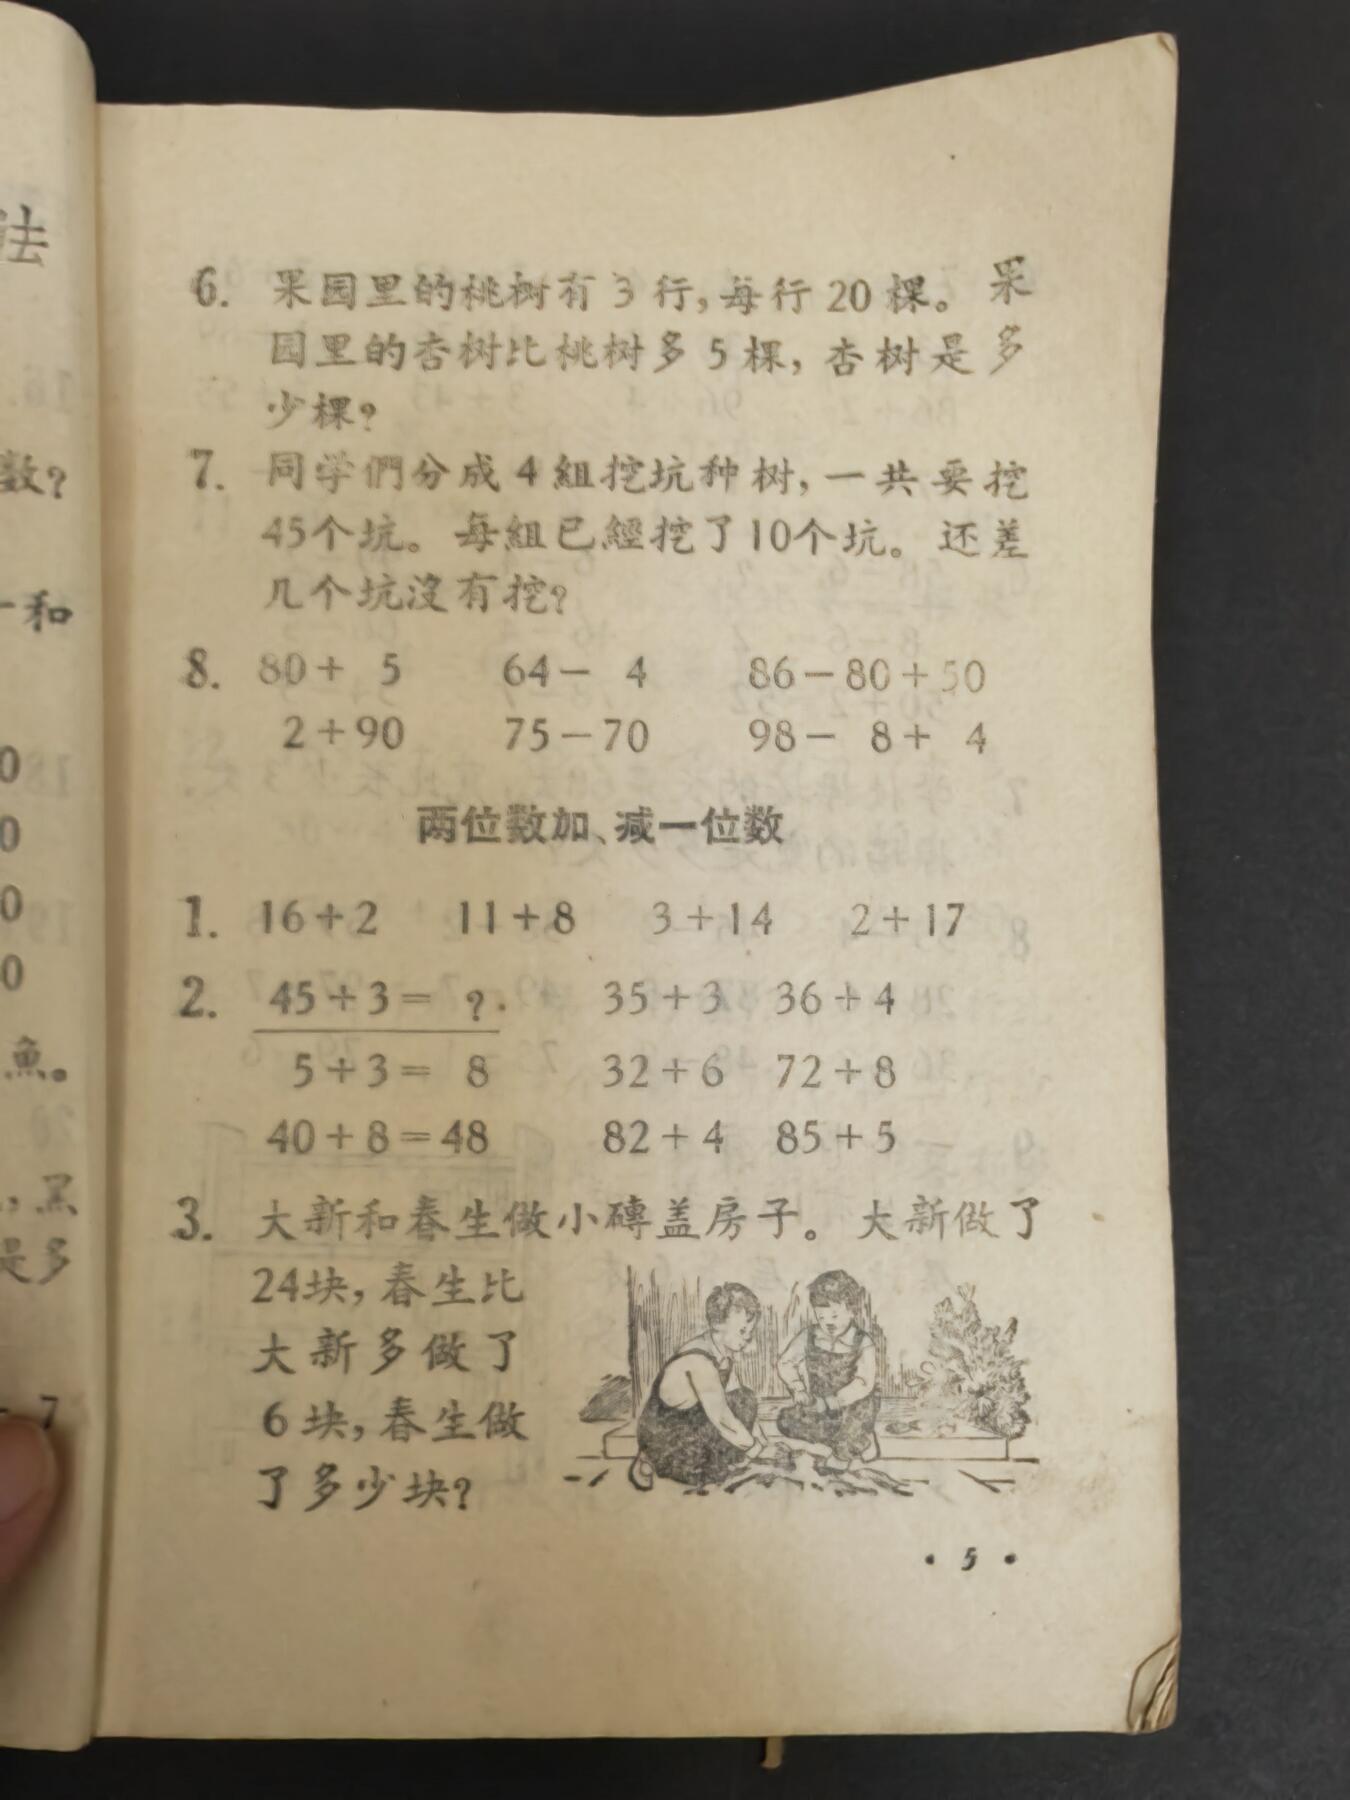 法
数?
和
0
0
0
0
魚。
黑
是多
7
6. 果园里的桃树有 3 行, 每行 20 棵。 果
园里的杏树比桃树多 5 棵, 杏树是多
少棵?
7. 同学們分成 4 組挖坑种树, 一共要挖
45个坑。 每組已經挖了10个坑。 还差
几个坑沒有挖?
8. 80+ 5 64- 4 86-80+50
2+90 75-70 98- 8+ 4
两位数加、减一位数
1. 16+2 11+8 3+14 2+17
2. 45+3= ? 35+3 36+4
5+3= 8 32+6 72+8
40+8=48 82+4 85+5
3. 大新和春生做小磚盖房子。 大新做了
24块, 春生比
大新多做了
6块, 春生做
了多少块?
• 5 •